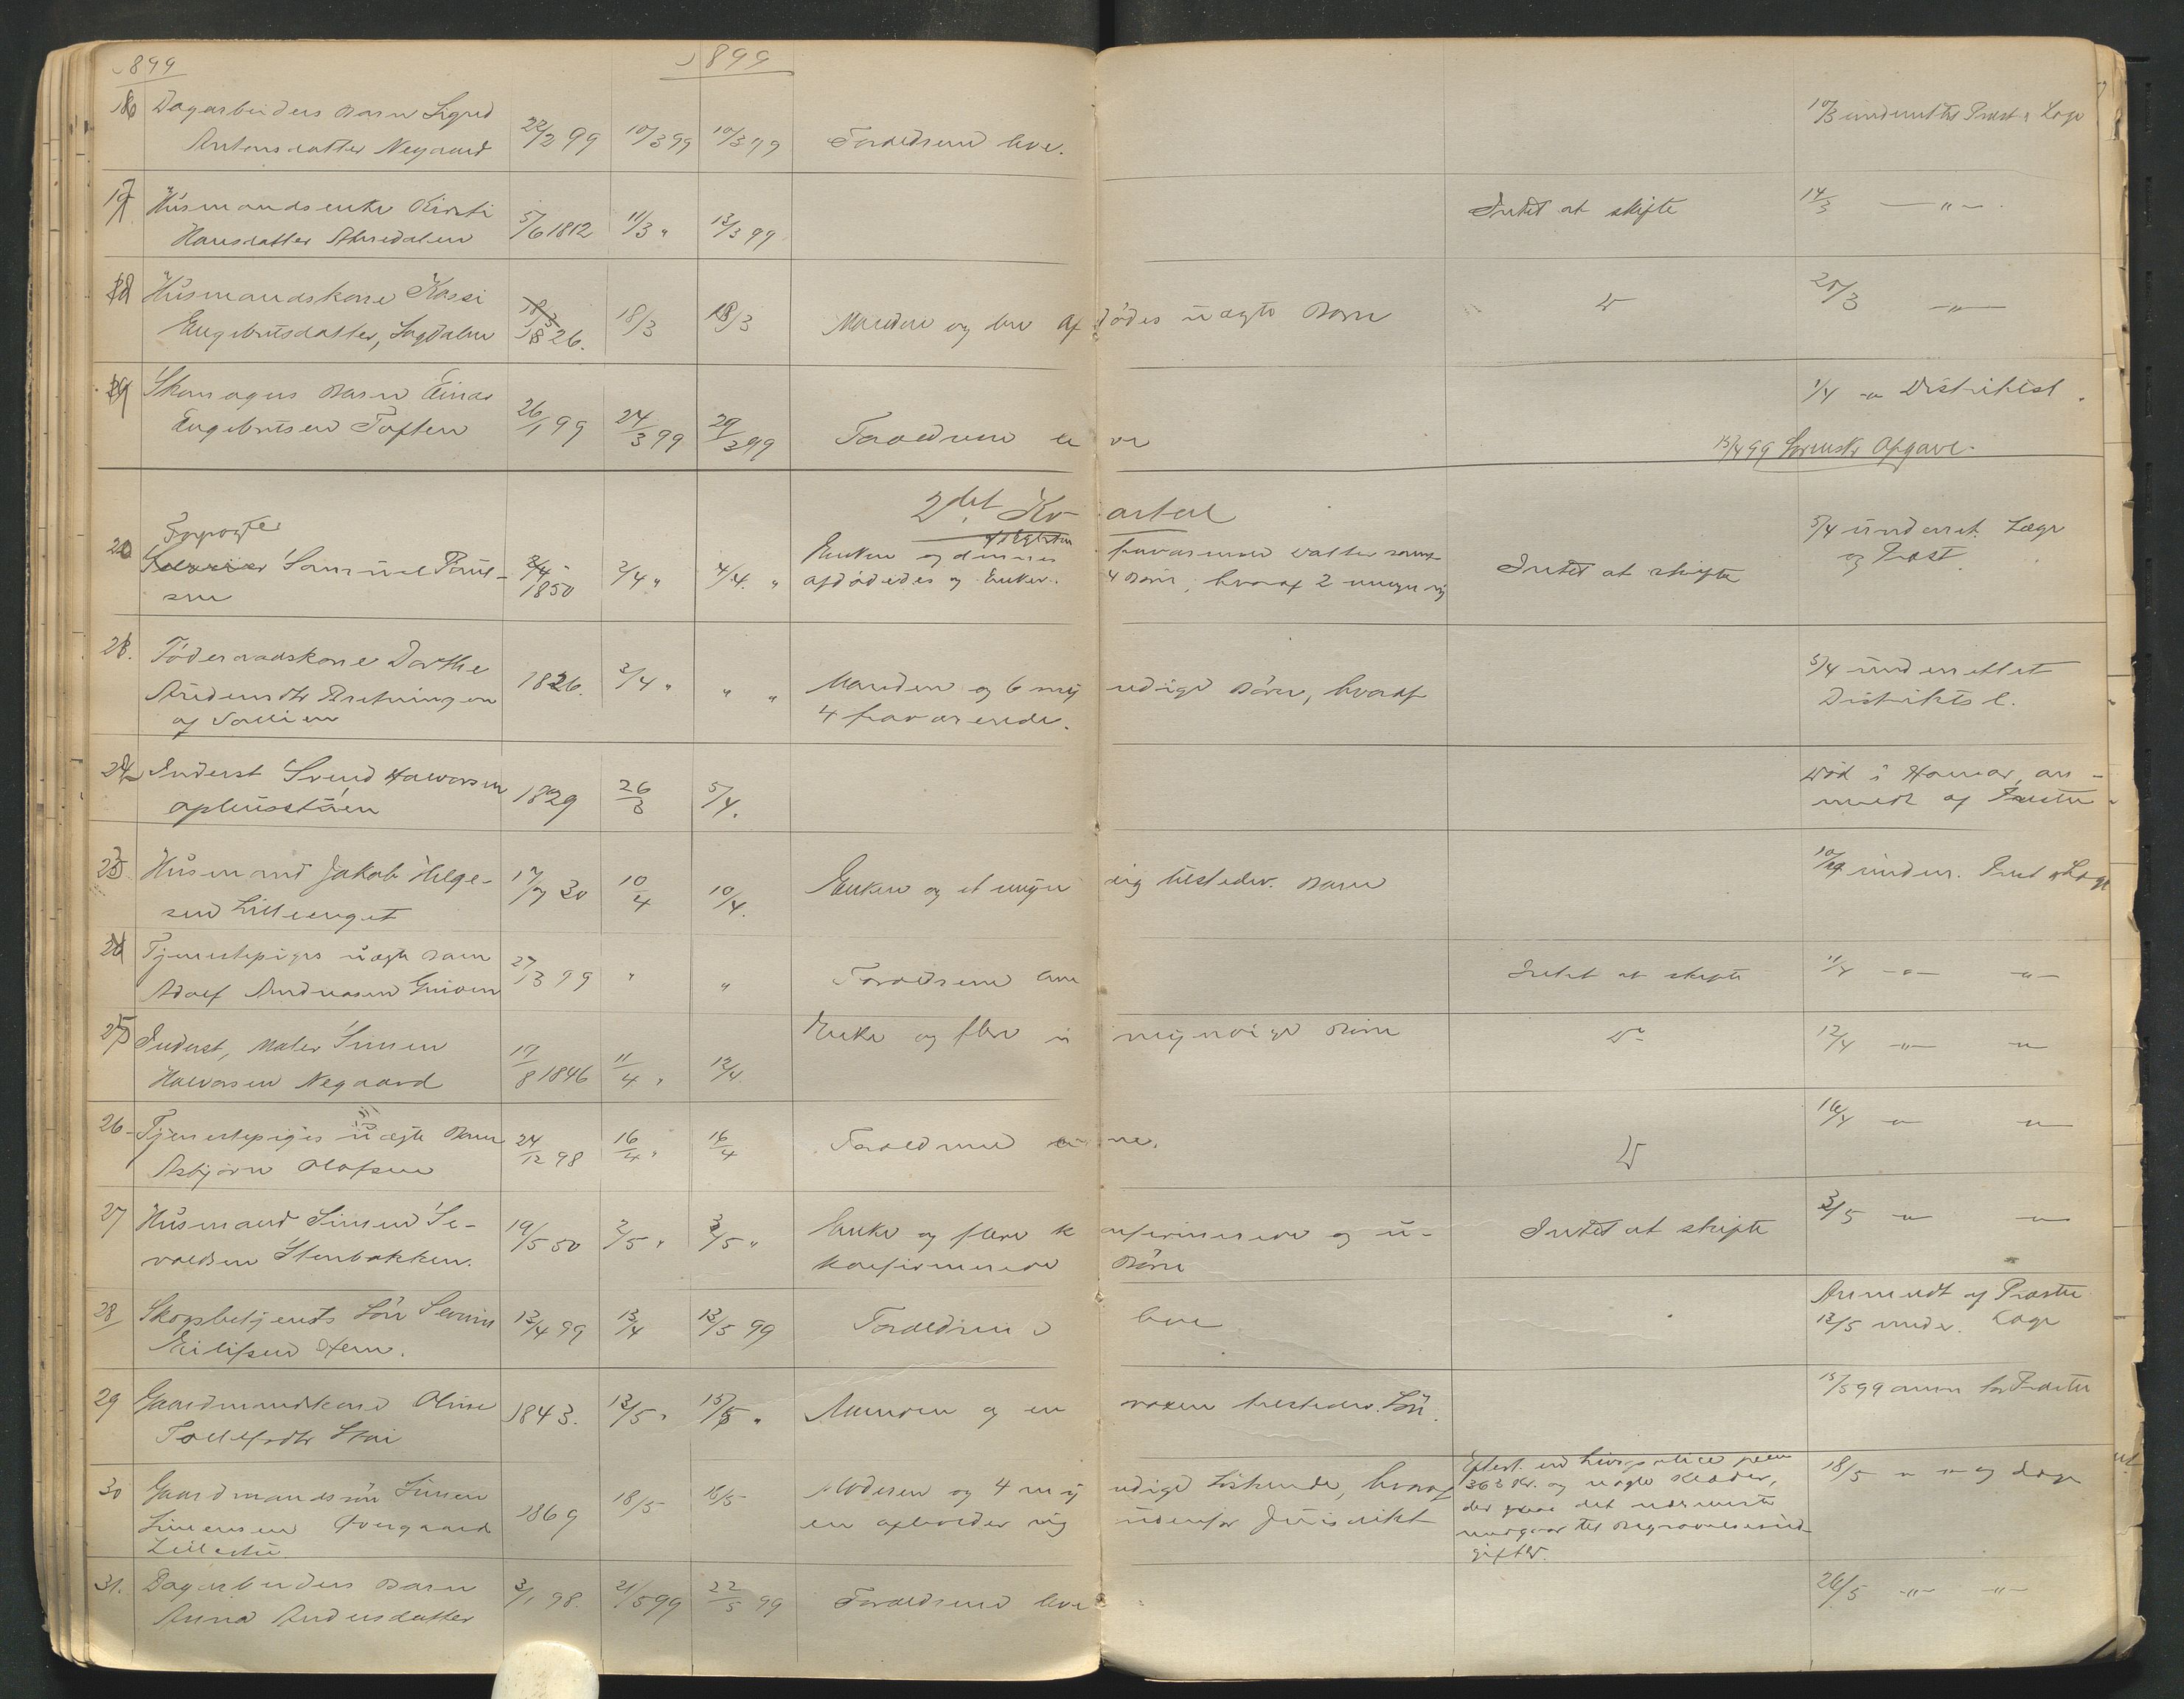 1899
1899
16 Dagarbeiders Barn Sigrid
Antonsdatter Negaard 22/2 99 10/3 99 10/3 99 Forældrene leve. 10/3 underrettet Præst & Læge
17 Husmandsenke Kirsti
Hansdatter 5/6 1812 11/3 " 13/3 99 Intet at skifte 14/3 — " —
18 Husmandskone Kassi
Engebretsdatter, Sagdalen 1826. 18/3 18/3 Manden og en Afdødes uægte Barn D 20/3 — " —
19 Skomagers Barn Einar
Engebretsen Toften 26/1 99 24/3 99 29/3 99 Forældrene leve 1/4 " Distriktsl.
15/4 99 Opgave.
2det Kvartal
20 Samuel Paul-
sen 1850 2/4 " 4/4 " Enken og dennes fraværende Datter samt
afdødedes og Enkes 4 Børn, hvoraf 2 umyndig Intet at skifte 5/4 underret. Læge
og Præst.
21. Føderaadskone Dorthe
1826. 2/4 " " " Manden og 6 myndige Børn, hvoraf
4 fraværende. 5/4 underrettet
Distriktsl.
22 Inderst Svend Halvorsen
1829 26/3 5/4. Død i Hamar, an-
meldt af Præsten
23 Husmand Jakob Helge-
sen Lilleenget 17/9 30 10/4 10/4. Enken og et umyndig tilstedev. Barn 10/4 underr. Præst & Læge
24 Tjenestepiges uægte Barn
Adolf Andreasen 27/3 99 " " Forældrene leve Intet at skifte 11/4 — " — — " —
25 Inderst, Maler Simen
Halvorsen Negaard 17/8 1846 11/4 " 12/4 Enke og flere umyndige Børn D 12/4 — " — — " —
26 Tjenestepiges uægte Barn
Asbjørn Olafsen 24/12 98 16/4 " 16/4 Forældrene leve. D 16/4 — " — — " —
27 Husmand Simen Se-
valdsen Stenbakken. 19/5 50 2/5 " 3/5 " Enke og flere konfirmerede og u-
konfirmerede Børn Intet at skifte 3/5 — " — — " —
28 Skogsbetjents Søn Severin
Eilifsen 13/4 99 13/4 13/5 99 Forældrene leve Anmeldt af Præsten
13/5 under. Læge
29 Gaardmandskone Oline
1843. 13/5 " 15/5 " Manden og en voxen tilstedev. Søn. 15/5 99 anm for Præsten
30 Gaardmandssøn Simen
Simensen 1869 18/5 18/5 Moderen og 4 myndige Søskende, hvoraf
en opholder sig udenfor Jurisdikt Efterl. en Livspolice
363 Kr. og nogle Klæder,
der det nærmeste
medgaar til Begravelsesud-
gifter. 18/5 — " — og Læge
31. Dagarbeiders Barn
Anna Andersdatter 3/1 98. 21/5 99 22/5 99 Forældrene leve 26/5 — " — — " —